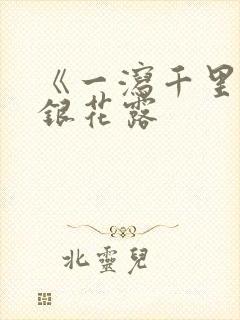 《一瀉千里
銀花露
北靈兒